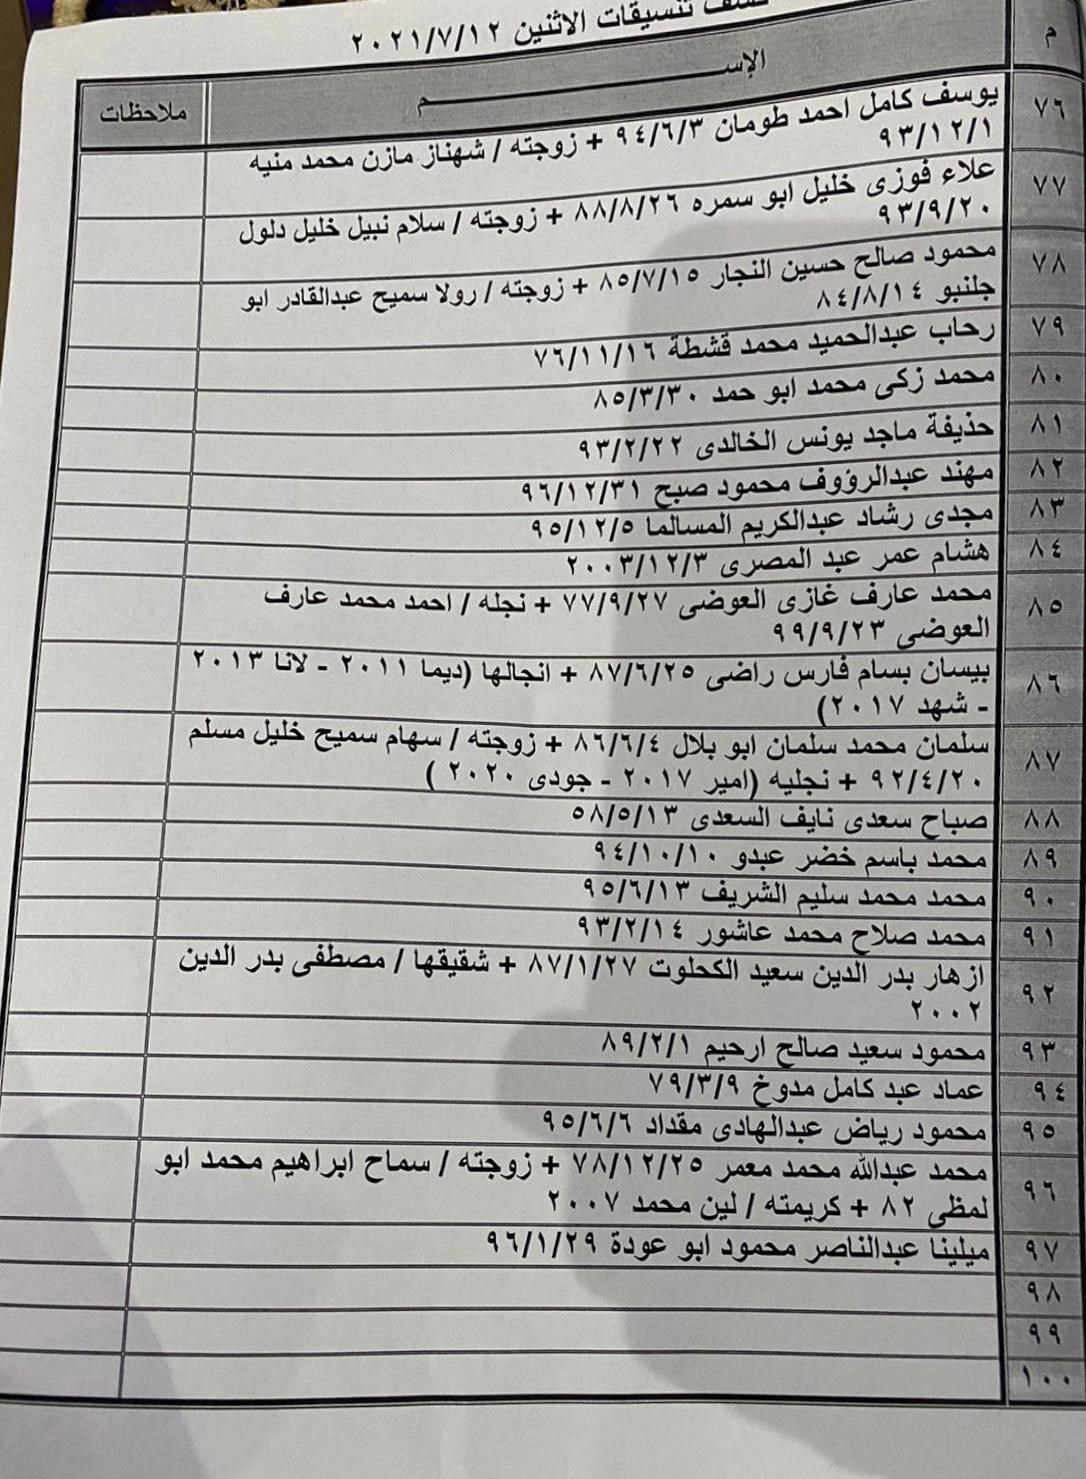 كشف تنسيقات الاثنين ٢٠٢١/٧/١٢
م الإســـــم ملاحظات
٧٦ يوسف كامل احمد طومان ٩٤/٦/٣ + زوجته / شهناز مازن محمد منيه
٩٣/١٢/١
٧٧ علاء فوزى خليل ابو سمره ٨٨/٨/٢٦ + زوجته / سلام نبيل خليل دلول
٩٣/٩/٢٠
٧٨ محمود صالح حسين النجار ٨٥/٧/١٥ + زوجته / رولا سميح عبدالقادر ابو
جلنبو ٨٤/٨/١٤
٧٩ رحاب عبدالحميد محمد قشطة ٧٦/١١/١٦
٨٠ محمد زكى محمد ابو حمد ٨٥/٣/٣٠
٨١ حذيفة ماجد يونس الخالدى ٩٣/٢/٢٢
٨٢ مهند عبدالرؤوف محمود صبح ٩٦/١٢/٣١
٨٣ مجدى رشاد عبدالكريم المسالما ٩٥/١٢/٥
٨٤ هشام عمر عبد المصرى ٢٠٠٣/١٢/٣
٨٥ محمد عارف غازى العوضى ٧٧/٩/٢٧ + نجله / احمد محمد عارف
العوضى ٩٩/٩/٢٣
٨٦ بيسان بسام فارس راضى ٨٧/٦/٢٥ + انجالها (ديما ٢٠١١ - لانا ٢٠١٣
- شهد ٢٠١٧)
٨٧ سلمان محمد سلمان ابو بلال ٨٦/٦/٤ + زوجته / سهام سميح خليل مسلم
٩٢/٤/٢٠ + نجليه (امير ٢٠١٧ - جودى ٢٠٢٠ )
٨٨ صباح سعدى نايف السعدى ٥٨/٥/١٣
٨٩ محمد باسم خضر عبدو ٩٤/١٠/١٠
٩٠ محمد محمد سليم الشريف ٩٥/٦/١٣
٩١ محمد صلاح محمد عاشور ٩٣/٢/١٤
٩٢ ازهار بدر الدين سعيد الكحلوت ٨٧/١/٢٧ + شقيقها / مصطفى بدر الدين
٢٠٠٢
٩٣ محمود سعيد صالح ارحيم ٨٩/٢/١
٩٤ عماد عبد كامل مدوخ ٧٩/٣/٩
٩٥ محمود رياض عبدالهادى مقداد ٩٥/٦/٦
٩٦ محمد عبدالله محمد معمر ٧٨/١٢/٢٥ + زوجته / سماح ابراهيم محمد ابو
لمظى ٨٢ + كريمته / لين محمد ٢٠٠٧
٩٧ ميلينا عبدالناصر محمود ابو عودة ٩٦/١/٢٩
٩٨
٩٩
١٠٠